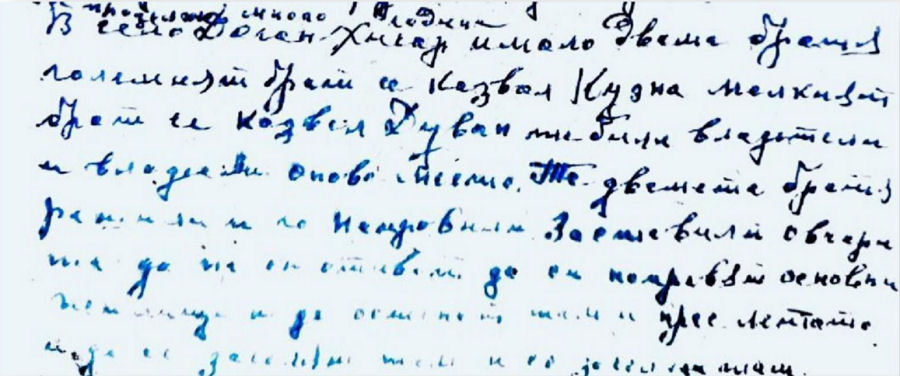 много години
В село Доган-Хисар имало двама братя
големият брат се казвал Кузна малкият
брат се казвал Дуван те били владетели
и владеели онова место. Те двамета братя
решили и го направили заставили овчари
та да си отиват да си направят основни
жилища и да останат там и през летата
и да се заселят там и се заселили там.